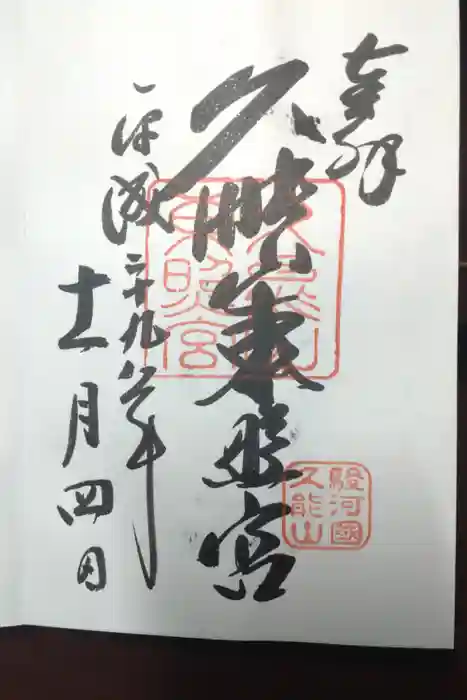 奉拝
久能山東照宮
平成二十九年
十一月四日
久能山
東照宮
駿河國
久能山